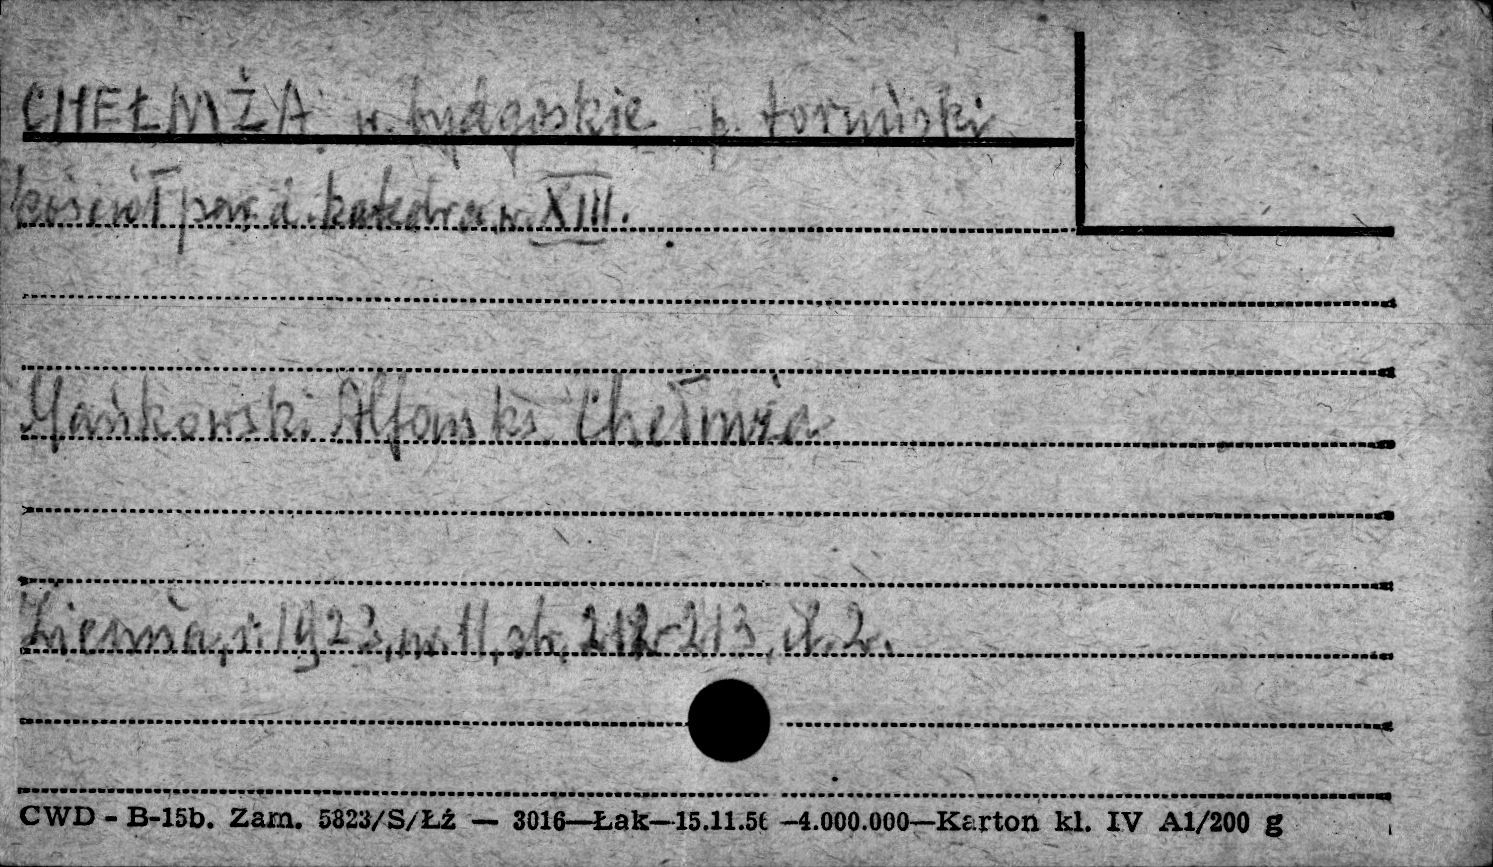 CHEŁMŻA w. bydgoskie p. toruński
kościół par. d. katedra w. XIII.
Mańkowski Alfons ks. Chełmża
Ziemia, r. 1923, nr. 11, str. 212-213, il. 2.
CWD - B-15b. Zam. 5823/S/Łź — 3016—Łak—15.11.56 —4.000.000—Karton kl. IV A1/200 g